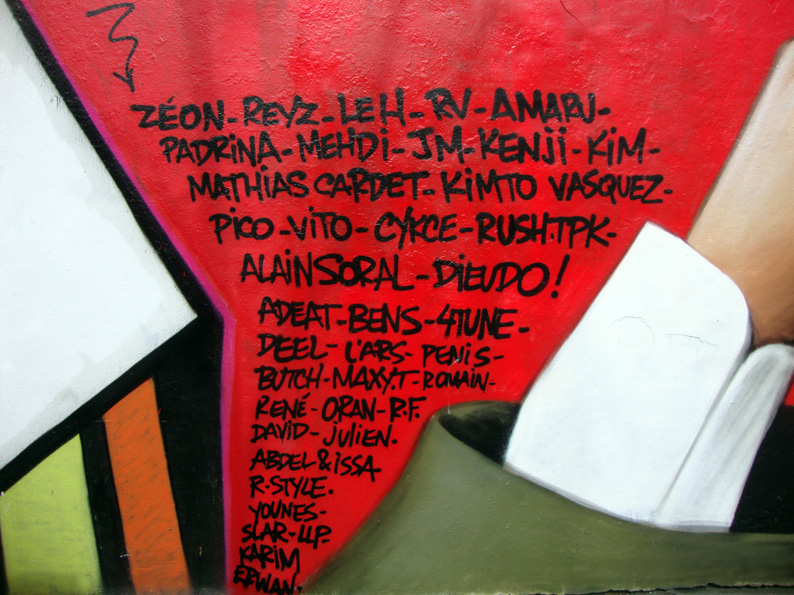 ZÉON - REYZ - LEH - RV - AMARU -
PADRINA - MEHDI - JM - KENJI - KIM -
MATHIAS CARDET - KIMTO VASQUEZ -
PICO - VITO - CYKCE - RUSH.TPK -
ALAIN SORAL - DIEUDO !
ADEAT - BENS - 4TUNE -
DEEL - L'ARS - PENIS -
BUTCH - MAXY.T - ROMAIN -
RENÉ - ORAN - R.F.
DAVID - JULIEN.
ABDEL & ISSA
R-STYLE.
YOUNES -
SLAR - LLP.
KARIM
ERWAN.